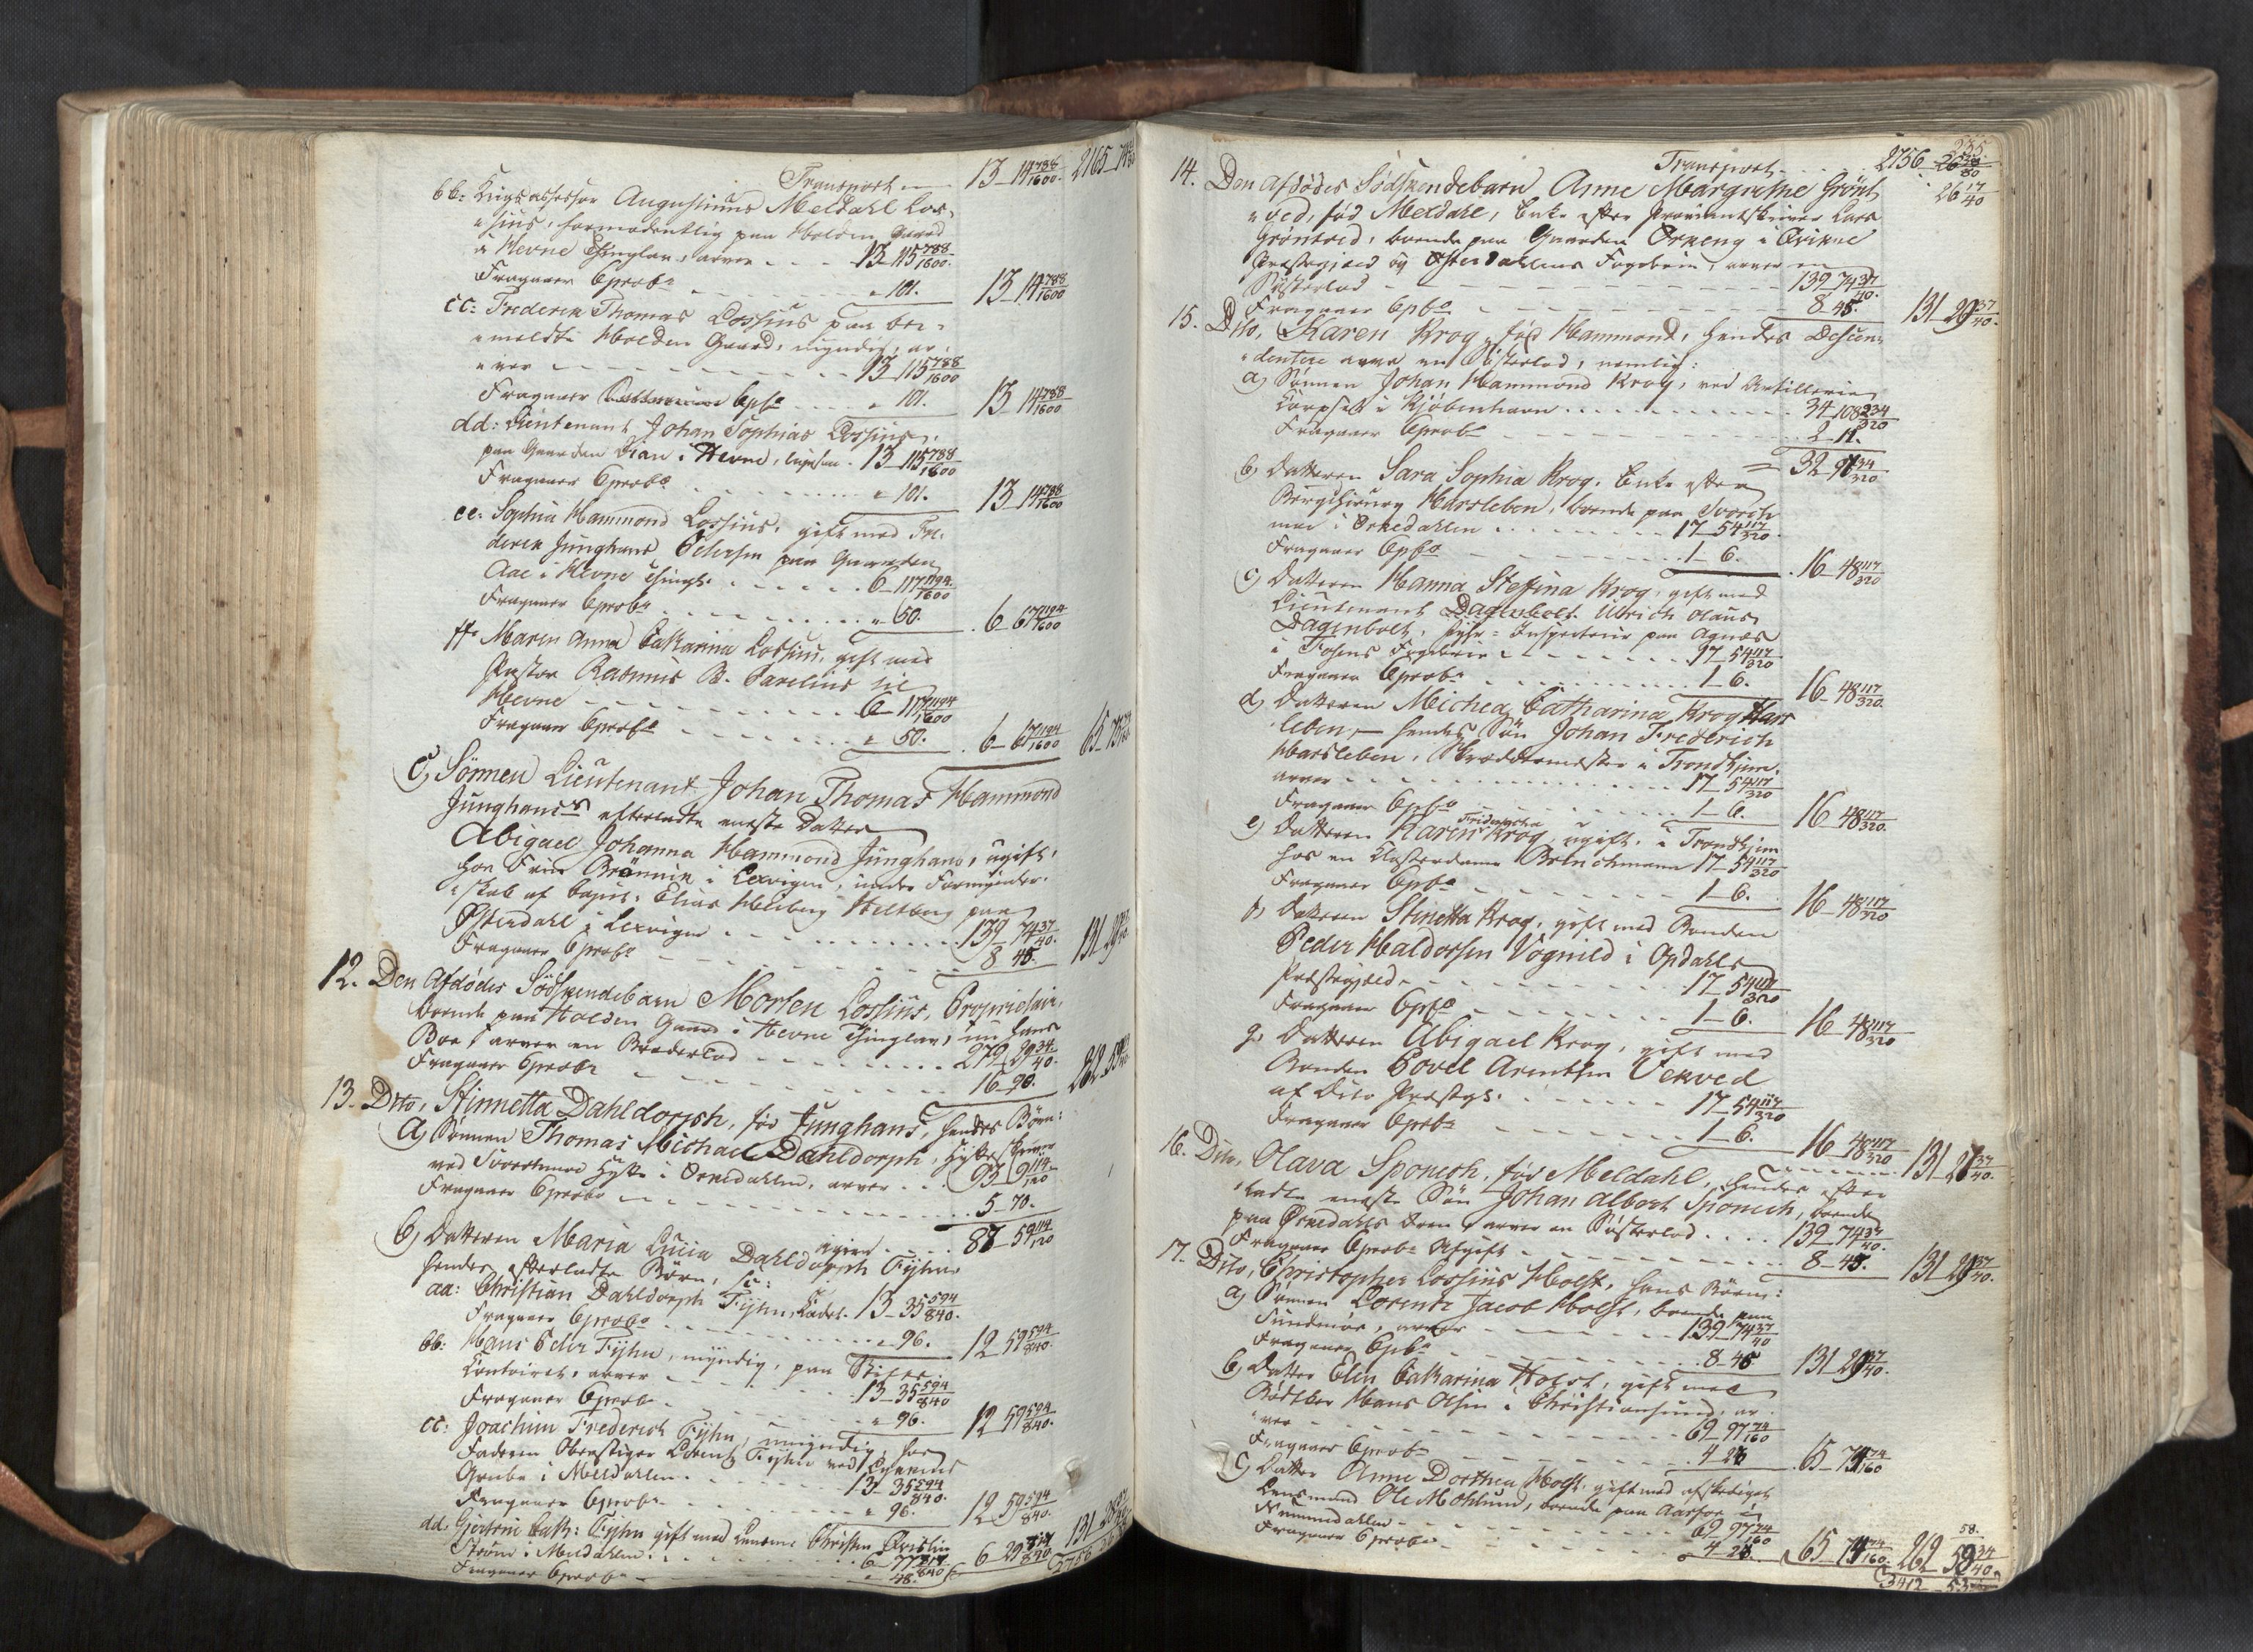 Transport 13 - 14 788/1600 2165 -
bb: Krigsassessor Augustinus Meldahl Los=
=sius, formodentlig paa Holden Gaard
i Hevne Thinglav, arver - - - 13 - 115 788/1600
Fragaaer 6 proCt - - - " 101. 13 - 14 788/1600
cc: Frederik Thomas Lossius paa be=
=meldte Holden Gaard, myndig, ar=
=ver - - - 13 - 115 788/1600
Fragaaer 6 pCt - - - " 101. 13 14 788/1600
dd: Lieutenant Johan Sophias Lossius,
paa Gaarden i Hevne, ligesaa - 13 - 115 788/1600
Fragaaer 6 proCt - - - " 101. 13 - 14 788/1600
ee: Sophia Hammond Lossius, gift med Fre=
derik Junghans Petersen paa Gaarden
Aae i Hevne Thingl: - - - 6 - 117 1194/1600
Fragaaer 6 proCt - - - " 50. 6 - 67 1194/1600
ff: Maren Anna Catharina Lossius, gift med
Pastor Rasmus B. Parelius til
Hevne - - - 6 - 117 1194/1600
Fragaaer 6 proCt - - - " 50. 6 - 67 1194/1600 65 -
C) Sönnen Lieutenant Johan Thomas Hammond
Junghans's efterladte eneste Datter
Abigael Johanna Hammond Junghans, ugift,
hos Frue i Lexvigen, under Formynder=
=skab af Elias Heiberg Heltberg paa
Österdahl i Lexvigen - - - 139 - 74 37/40
Fragaaer 6 proCt - - - 8 45. 131 - 29
12. Den Afdödes Södskendebarn Morten Lossius, Proprietair,
boende paa Holden Gaard i Hevne Thinglav, nu hans
Boe, arver en Broderlod - - - 279 - 29 34/40
Fragaaer 6 proCt - - - 16 - 90. 262 - 59
13. Dito, Stinnetta Dahldorph, föd Junghans, hendes Börn:
a) Sönnen Thomas Michael Dahldorph, Hytteskriver
ved Svorkmoe Hytte i Orkedahlen, arver - - 93 - 9 114/120
Fragaaer 6 proCt - - - 5 - 70.
igien - - - 87 - 59 114/120
b) Datteren Maria Lucia Dahldorph Fyhn,
hendes efterladte Börn,
aa: Christian Dahldorph Fyhn, Cadet - 13 - 35 594/840
Fragaaer 6 proCt - - - " 96. 12 59 594/840
bb: Hans Peder Fyhn, myndig, paa Stifts=
Contoiret, arver - - - 13 - 35 594/840
Fragaaer 6 proCt - - - " 96. 12 59 594/840
cc: Joachim Frederich Fyhn, umyndig, hos
Faderen Oberstiger Lorentz Fyhn ved Lökkens
Grube i Meldahlen - - - 13 - 35 594/840
Fragaaer 6 proCt - - - " 96. 12 59 594/840
dd. Gjertrue Cath: Fyhn gift med Christen
Ström i Meldahlen - - - 6 - 77 817/840 6 29 817/840 131
Fragaaer 6 proCt - - - " 48. 2756

235
Transport - - - 2756 26 17/40
14. Den Afdödes Södskendebarn Anne Margrethe Grönt=
=ved, föd Meldahl, Enke efter Proviantskriver Lars
Gröntved, boende paa Gaarden Örkeng i Qvikne
Præstegjeld og Österdahlens Fogderie, arver en
Söslerlod - - - 139 74 37/40
Fragaaer 6 pCt - - - 8 45. 131 29 37/40
15. Dito, Karen Krog, föd Hammond, hendes Descen=
=denter arve en Söslerlod, nemlig:
a) Sönnen Johan Hammond Krog, ved Artillerie
Corpset i Kjöbenhavn - - - 34 - 108 234/320
Fragaaer 6 proCt - - - 2 - 11.
= 32 - 97 234/320
b) Datteren Sara Sophia Krog, Enke efter
Bergchirurg Harsleben, boende paa Svork=
moe i Orkedahlen - - - 17 - 54 117/320
Fragaaer 6 pCt - - - 1 - 6. 16 - 48 117/320
c) Datteren Hanna Steffina Krog, gift med
Lieutenant Dagenbolt Ulrich Olaus
Dagenbolt, Fyhr=Inspecteur paa Agnæs
i Fosens Fogderie - - - 17 - 54 117/320
Fragaaer 6 proCt - - - 1 - 6. 16 - 48 117/320
d) Datteren Michea Catharina Krog Hars=
leben, hendes Sön Johan Frederich
Harsleben, Skræddermester i Trondhjem,
arver - - - 17 - 54 117/320
Fragaaer 6 pCt - - - 1 - 6. 16 - 48 117/320
e) Datteren Karen Friderecha Krog, ugift, i Trondhjem
hos en Klosterdame Brinchmann 17 - 54 117/320
Fragaaer 6 pCt - - - 1 - 6. 16 - 48 117/320
f) Datteren Stinetta Krog, gift med Bonden
Peder Haldorsen Vognild i Opdahls
Præstegjeld - - - 17 - 54 117/320
Fragaaer 6 pCt - - - 1 - 6. 16 - 48 117/320
g) Datteren Abigael Krog, gift med
Bonden Povel Arentsen Vekved
af Dito Præstegj. - - - 17 - 54 117/320
Fragaaer 6 proCt - - - 1 - 6. 16 - 48 117/320 131 - 27 37/40
16. Dito, Olava Sponich, föd Meldahl, hendes efter=
=ladte eneste Sön Johan Albert Sponich, boende
paa Orkedahls Ören, arver en Söslerlod - - - 139 - 74 37/40
Fragaaer 6 proCt Afgift - - - 8 - 45. 131 29 37/40
17. Dito, Christopher Lossius Holst, hans Börn:
a) Sönnen Lorentz Jacob Holst, boende paa
Sundmör, arver - - - 139 - 74 37/40
Fragaaer 6 pCt - - - 8 - 45 131 29 37/40
b) Datter Elen Catharina Holst, gift med
Bödtker Hans Olsen i Christiansund, ar=
=ver - - - 69 - 97 74/160
Fragaaer 6 proCt - - - 4 - 23 65 - 74 74/160
c) Datter Anne Dorthea Holst, gift med afskediget
Lensmand Ole Mohlund, boende paa Aarfor i
Nummedahlen - - - 69 - 97 74/160
Fragaaer 6 proCt - - - 4 - 23. 65 74 74/160 262 58 34/40
3412 - 53